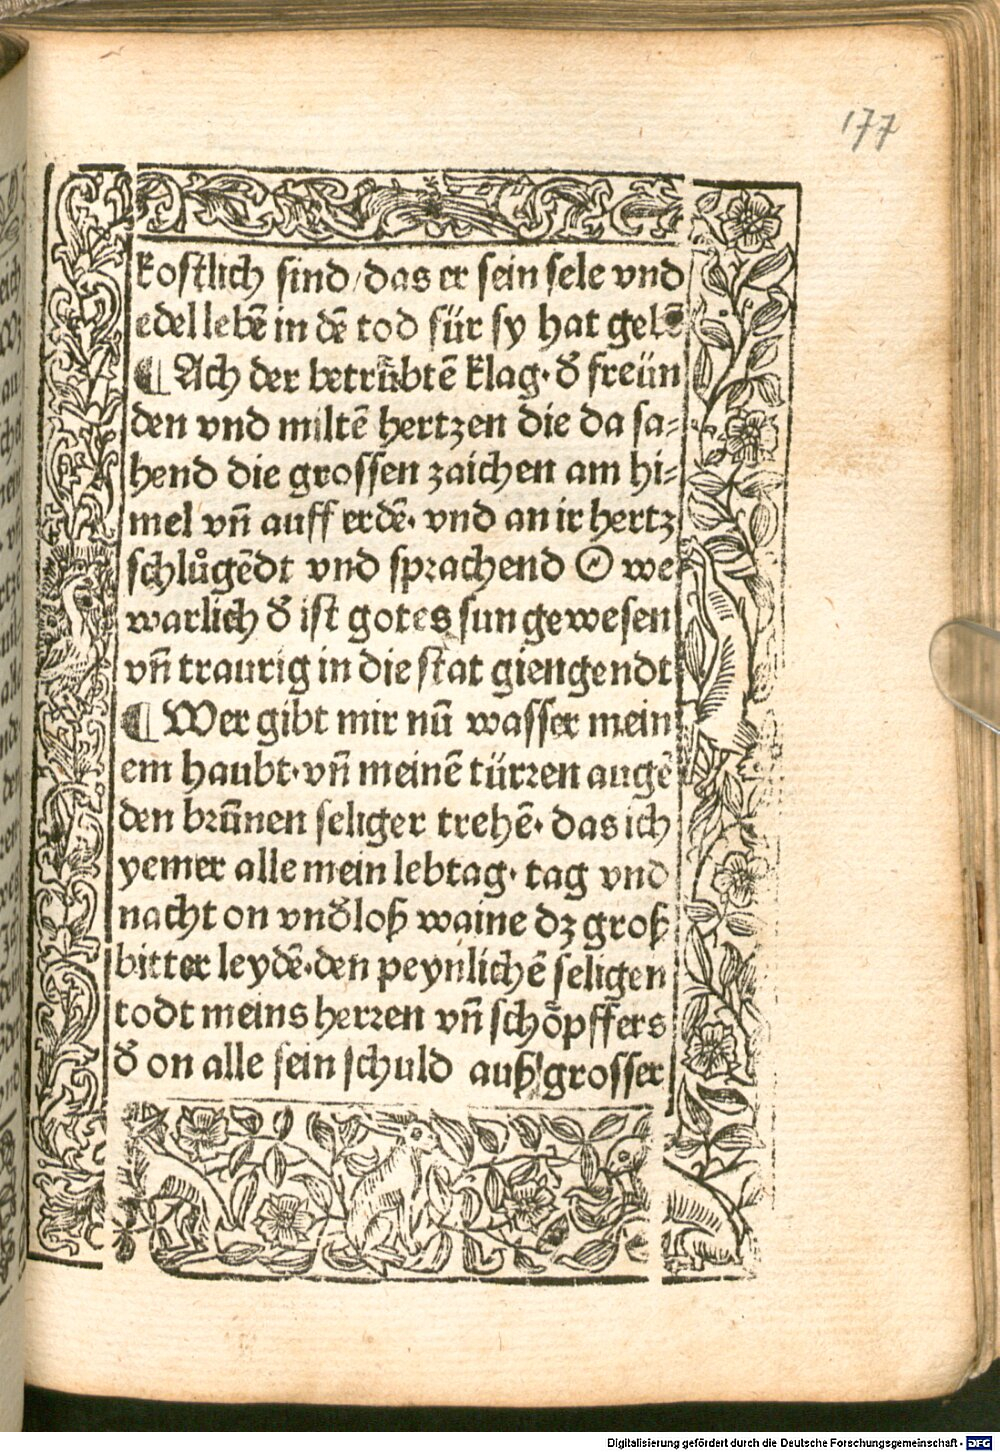 177
kostlich sind/das er sein sele vnd
edel lebē in dē tod für sy hat gebē
¶ Ach der betrůbtē klag· đ freün
den vnd miltē hertzen die da sa⸗
hend die grossen zaichen am hi⸗
mel vñ auff erdē· vnd an ir hertz
schlůgēdt vnd sprachend O we
warlich đ ist gotes sun gewesen
vñ traurig in die stat giengendt
¶ Wer gibt mir nū wasser mein
em haubt· vñ meinē türren augē
den brūnen seliger trehē· das ich
yemer alle mein lebtag· tag vnd
nacht on vnđloß waine dz groß
bitter leydē·den peynlichē seligen
todt meins herren vñ schöpffers
đ on alle sein schuld auß grosser
Digitalisierung gefördert durch die Deutsche Forschungsgemeinschaft - DFG